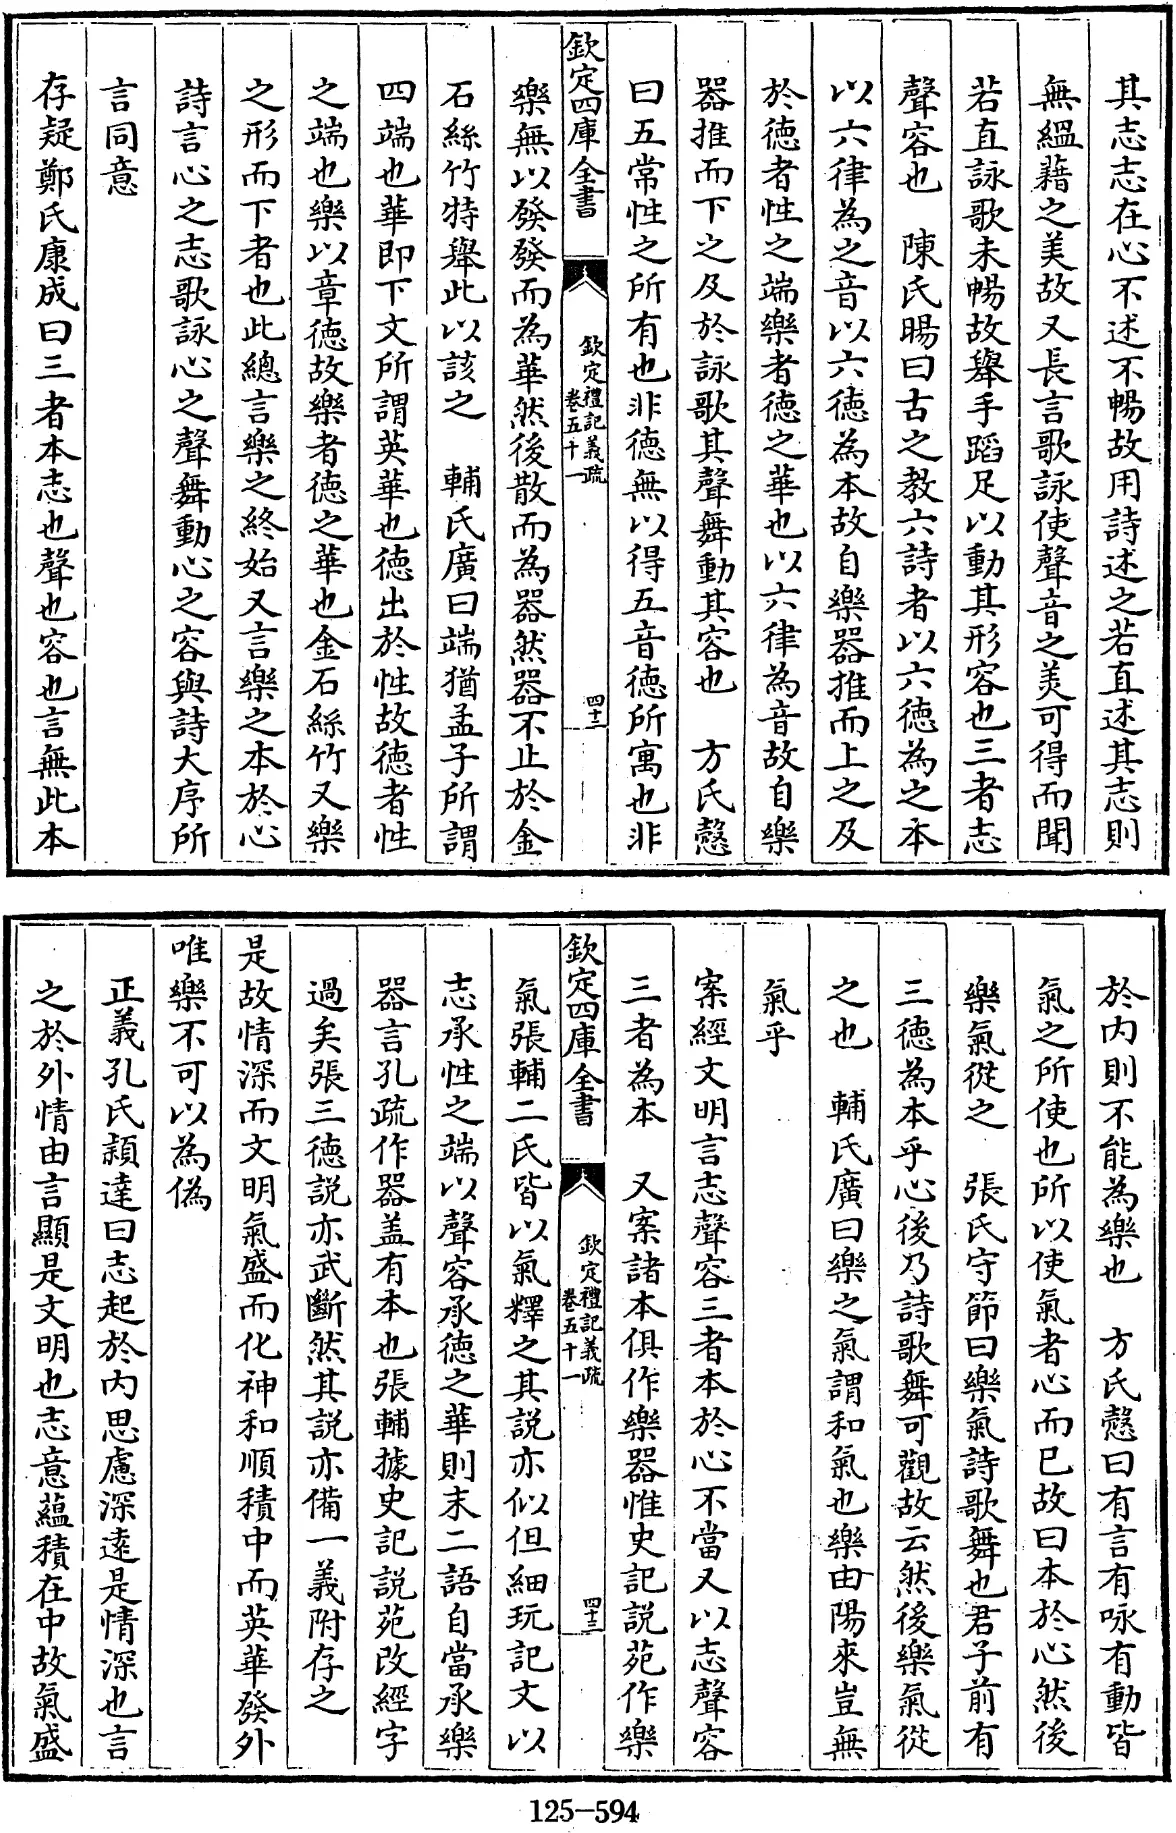 其志志在心不述不暢故用詩述之若直述其志則
無縕藉之美故又長言歌詠使聲音之美可得而聞
若直詠歌未暢故舉手蹈足以動其形容也三者志
聲容也　陳氏暘曰古之教六詩者以六德為之本
以六律為之音以六德為本故自樂器推而上之及
於德者性之端樂者德之華也以六律為音故自樂
器推而下之及於詠歌其聲舞動其容也　方氏慤
曰五常性之所有也非德無以得五音德所寓也非
欽定四庫全書　欽定禮記義疏　卷五十一　四十二
樂無以發發而為華然後散而為器然器不止於金
石絲竹特舉此以該之　輔氏廣曰端猶孟子所謂
四端也華即下文所謂英華也德出於性故德者性
之端也樂以章德故樂者德之華也金石絲竹又樂
之形而下者也此總言樂之終始又言樂之本於心
詩言心之志歌詠心之聲舞動心之容與詩大序所
言同意
存疑鄭氏康成曰三者本志也聲也容也言無此本
於内則不能為樂也　方氏慤曰有言有咏有動皆
氣之所使也所以使氣者心而已故曰本於心然後
樂氣從之　張氏守節曰樂氣詩歌舞也君子前有
三德為本乎心後乃詩歌舞可觀故云然後樂氣從
之也　輔氏廣曰樂之氣謂和氣也樂由陽來豈無
氣乎
案經文明言志聲容三者本於心不當又以志聲容
三者為本　又案諸本俱作樂器惟史記説苑作樂
欽定四庫全書　欽定禮記義疏　卷五十一　四十三
氣張輔二氏皆以氣釋之其説亦似但細玩記文以
志承性之端以聲容承德之華則末二語自當承樂
器言孔疏作器盖有本也張輔據史記説苑改經字
過矣張三德説亦武斷然其説亦備一義附存之
是故情深而文明氣盛而化神和順積中而英華發外
唯樂不可以為偽
正義孔氏頴達曰志起於内思慮深遠是情深也言
之於外情由言顯是文明也志意蘊積在中故氣盛
125-594